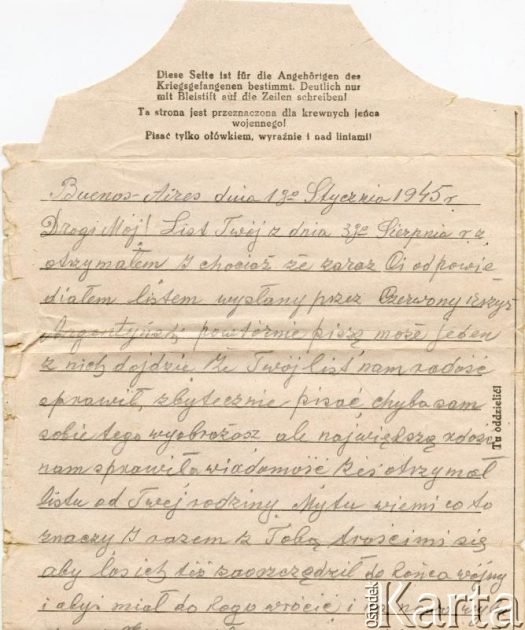 Diese Seite ist für die Angehörigen des
Kriegsgefangenen bestimmt. Deutlich nur
mit Bleistift auf die Zeilen schreiben!
Ta strona jest przeznaczona dla krewnych jeńca
wojennego!
Pisać tylko ołówkiem, wyraźnie i nad liniami!
Buenos-Aires dnia 13go Stycznia 1945 r.
Drogi Mój! List Twój z dnia Sierpnia r.z.
otrzymałem I chociaż że zaraz Ci odpowie
działem listem wysłany przez Czerwony Krzyż
Argentyński powtórnie piszę może jeden
z nich dojdzie Że Twój list nam radość
sprawił, zbytecznie pisać, chyba sam
sobie tego wyobrożasz ale największą rdość
nam sprawiła wiadomość żeś otrzymał
listu od Twej rodziny. My tu wiemi co to
znaczy I razem z Tobą trościmi się
aby los ich też zaoszczędził do końca wojny
i abyś miał do kogo wrócić i
Tu oddzielić!
ośrodek
Karta